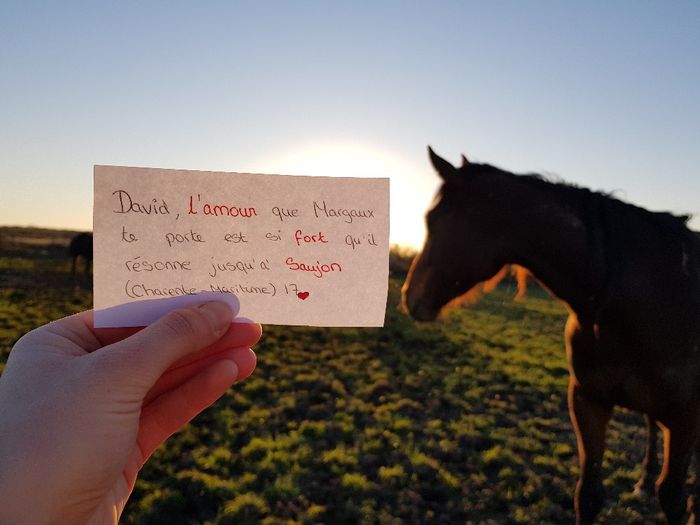 David, l'amour que Margaux
te porte est si fort qu'il
résonne jusqu'à Saujon
(Charente-Maritime) 17